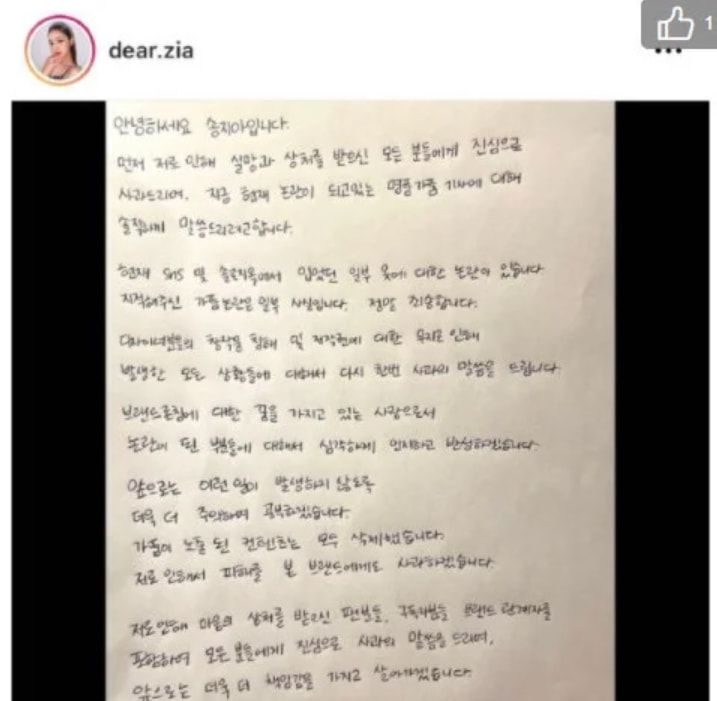 1
dear.zia
안녕하세요 송지아입니다.
먼저 저로 인해 실망과 상처를 받으신 모든 분들에게 진심으로
사과드리며, 지금 현재 논란이 되고있는 명품가품 기사에 대해
솔직하게 말씀드리려고합니다.
현재 SNS 및 솔로지옥에서 입었던 일부 옷에 대한 논란이 있습니다
지적해주신 가품논란은 일부 사실입니다. 정말 죄송합니다.
디자이너분들의 창작물 침해 및 저작권에 대한 무지로 인해
발생한 모든 상황들에 대해서 다시 한번 사과의 말씀을 드립니다
브랜드론칭에 대한 꿈을 가지고 있는 사람으로서
논란이 된 부분들에 대해서 심각하게 인지하고 반성하겠습니다.
앞으로는 이런 일이 발생하지 않도록
더욱 더 주의하며 공부하겠습니다.
가품이 노출 된 컨텐츠는 모두 삭제했습니다.
저로 인해서 피해를 본 브랜드에게도 사과하겠습니다.
저로인해 마음의 상처를 받으신 팬분들, 구독자분들 브랜드 관계자를
포함하여 모든 분들에게 진심으로 사과의 말씀을 드리며,
앞으로는 더욱 더 책임감을 가지고 살아가겠습니다.